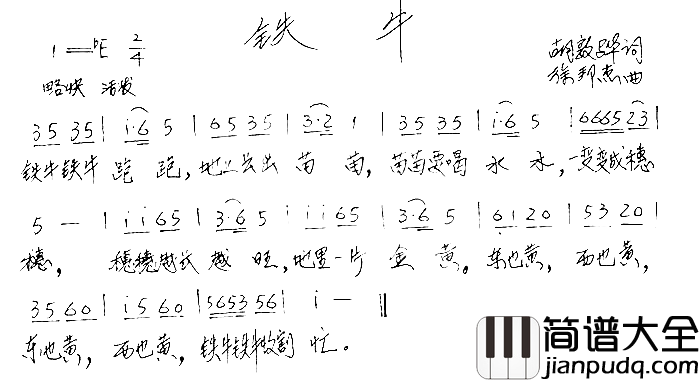 铁牛
1=bE 2/4
胡敦骅词
徐邦杰曲
略快 活发
35 35 | i·6 5 | 65 35 | 3·2 1 | 35 35 | i·6 5 | 6665 23 |
铁牛铁牛跑跑,地上去出苗苗,苗苗要喝水水,一变变成穗
5 — | i i 65 | 3·6 5 | i i i 65 | 3·6 5 | 6 i 20 | 53 20 |
穗, 穗穗越长越旺,地里一片金黄。东也黄,西也黄,
35 60 | i5 60 | 5653 56 | i — ‖
东也黄,西也黄,铁牛铁牛收割忙。
简谱大全
www.jianpudq.com